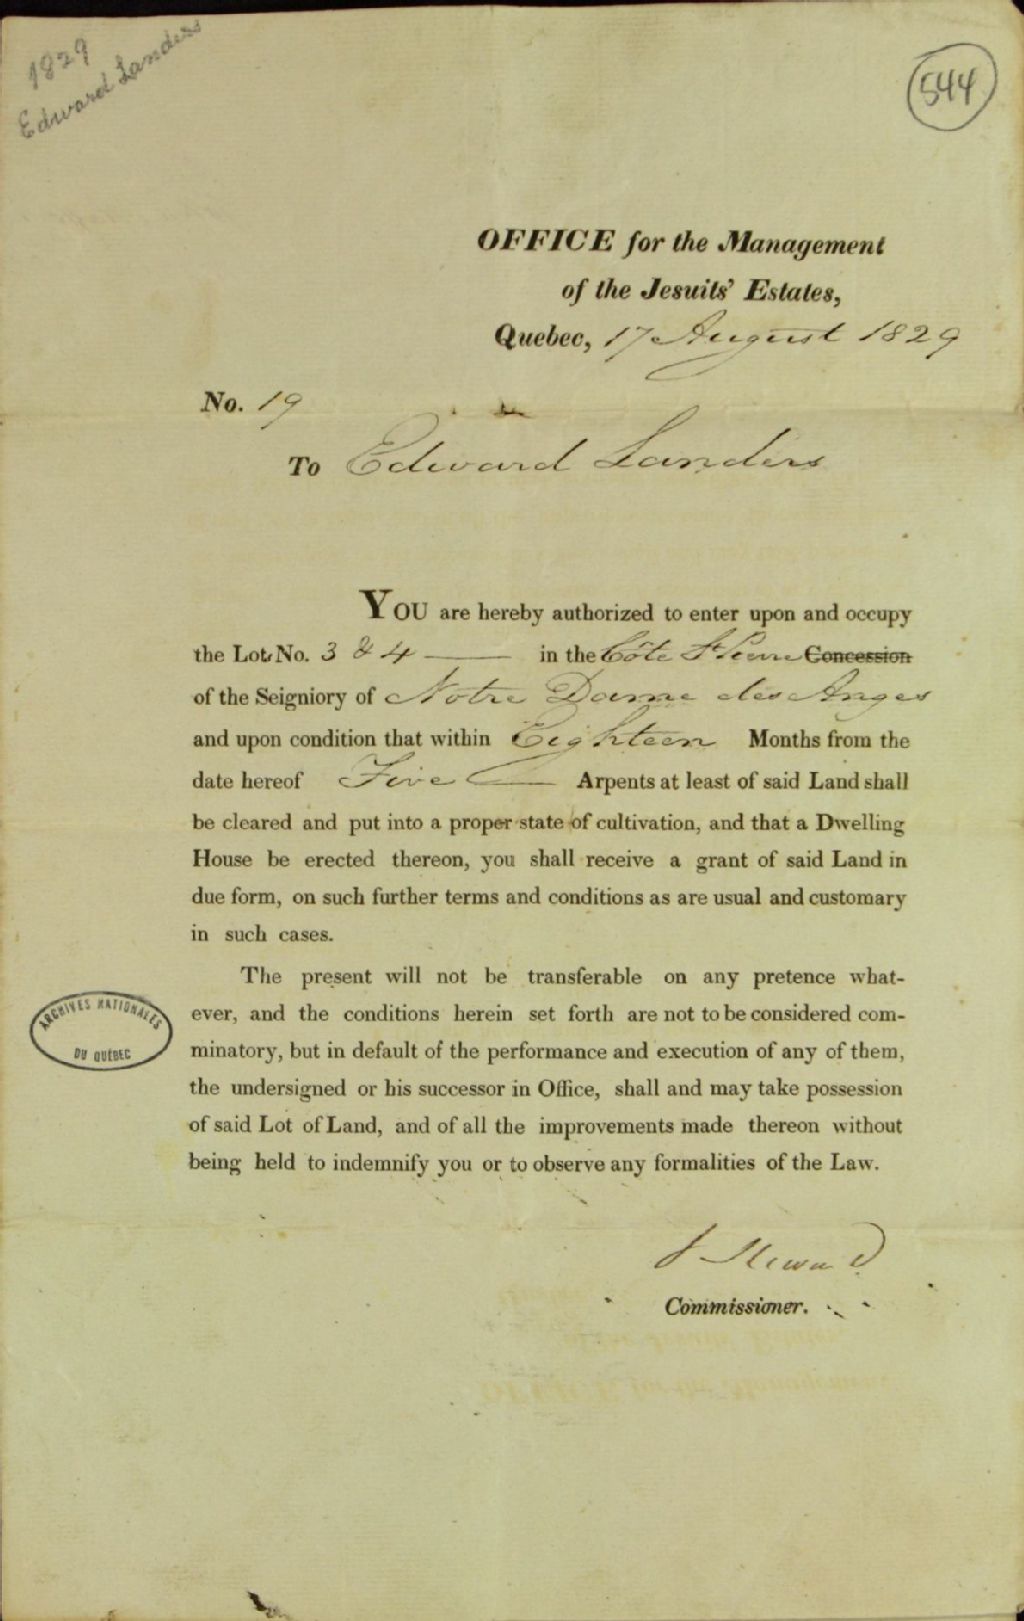 1829
Edward Landers
544
OFFICE for the Management
of the Jesuits' Estates,
Quebec, 17 August 1829
No. 19
To Edward Landers
YOU are hereby authorized to enter upon and occupy
the Lots No. 3 & 4 in the Côte St Pierre Concession
of the Seigniory of Notre Dame des Anges
and upon condition that within Eighteen Months from the
date hereof Five Arpents at least of said Land shall
be cleared and put into a proper state of cultivation, and that a Dwelling
House be erected thereon, you shall receive a grant of said Land in
due form, on such further terms and conditions as are usual and customary
in such cases.
The present will not be transferable on any pretence what-
ever, and the conditions herein set forth are not to be considered com-
minatory, but in default of the performance and execution of any of them,
the undersigned or his successor in Office, shall and may take possession
of said Lot of Land, and of all the improvements made thereon without
being held to indemnify you or to observe any formalities of the Law.
ARCHIVES NATIONALES
DU QUÉBEC
J Stewart
Commissioner.